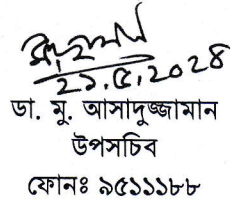 ২১.৫.2024
ডা. মু. আসাদুজ্জামান
উপসচিব
ফোনঃ ৯৫১১১৮৮